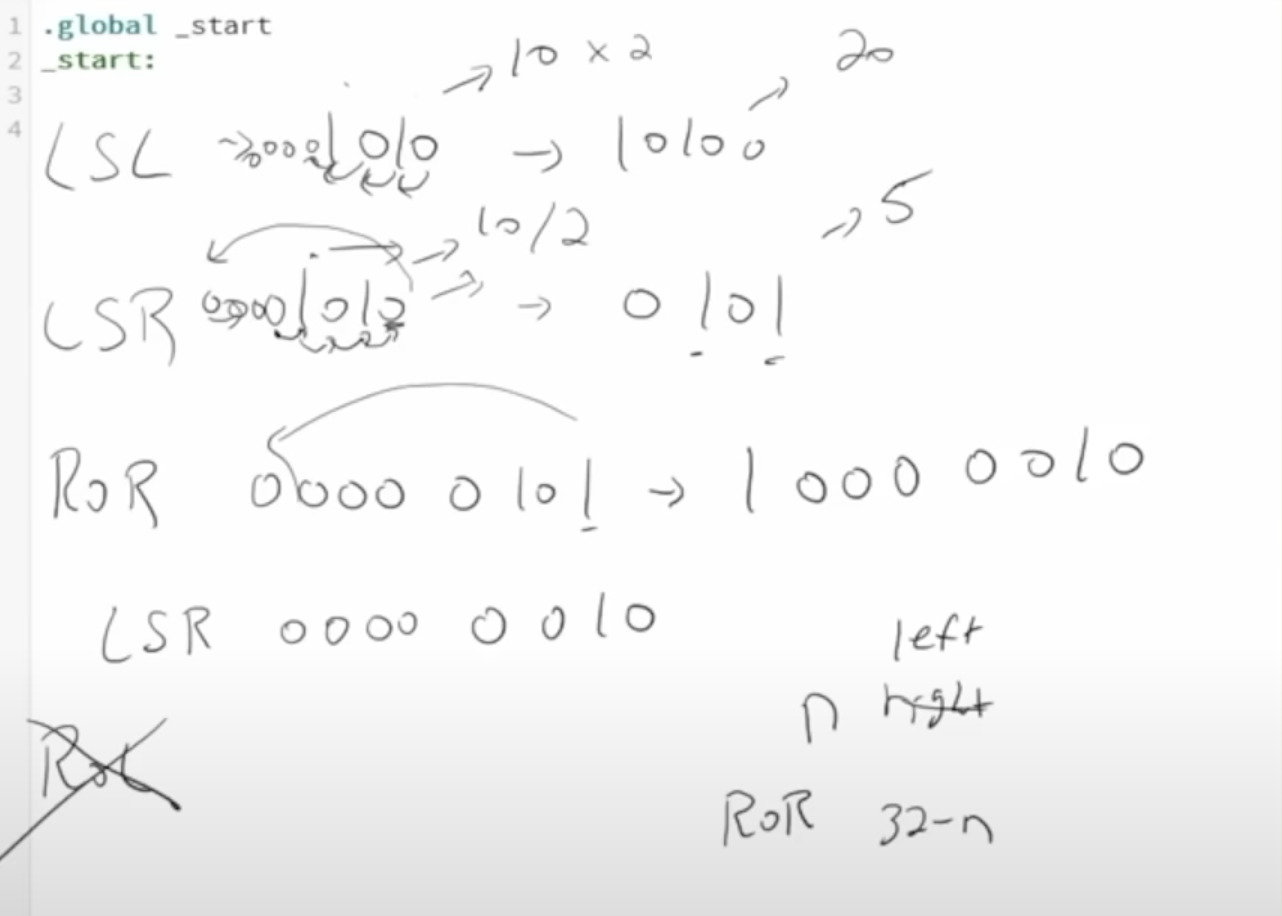 1 .global _start
2 _start:
3
4
→ 10 × 2
20
LSL → 00001010 → 10100
→ 10/2
→ 5
LSR 00001010 → 0101
ROR 0000 0101 → 1000 0010
LSR 0000 0010
left
n right
ROL
ROR 32-n